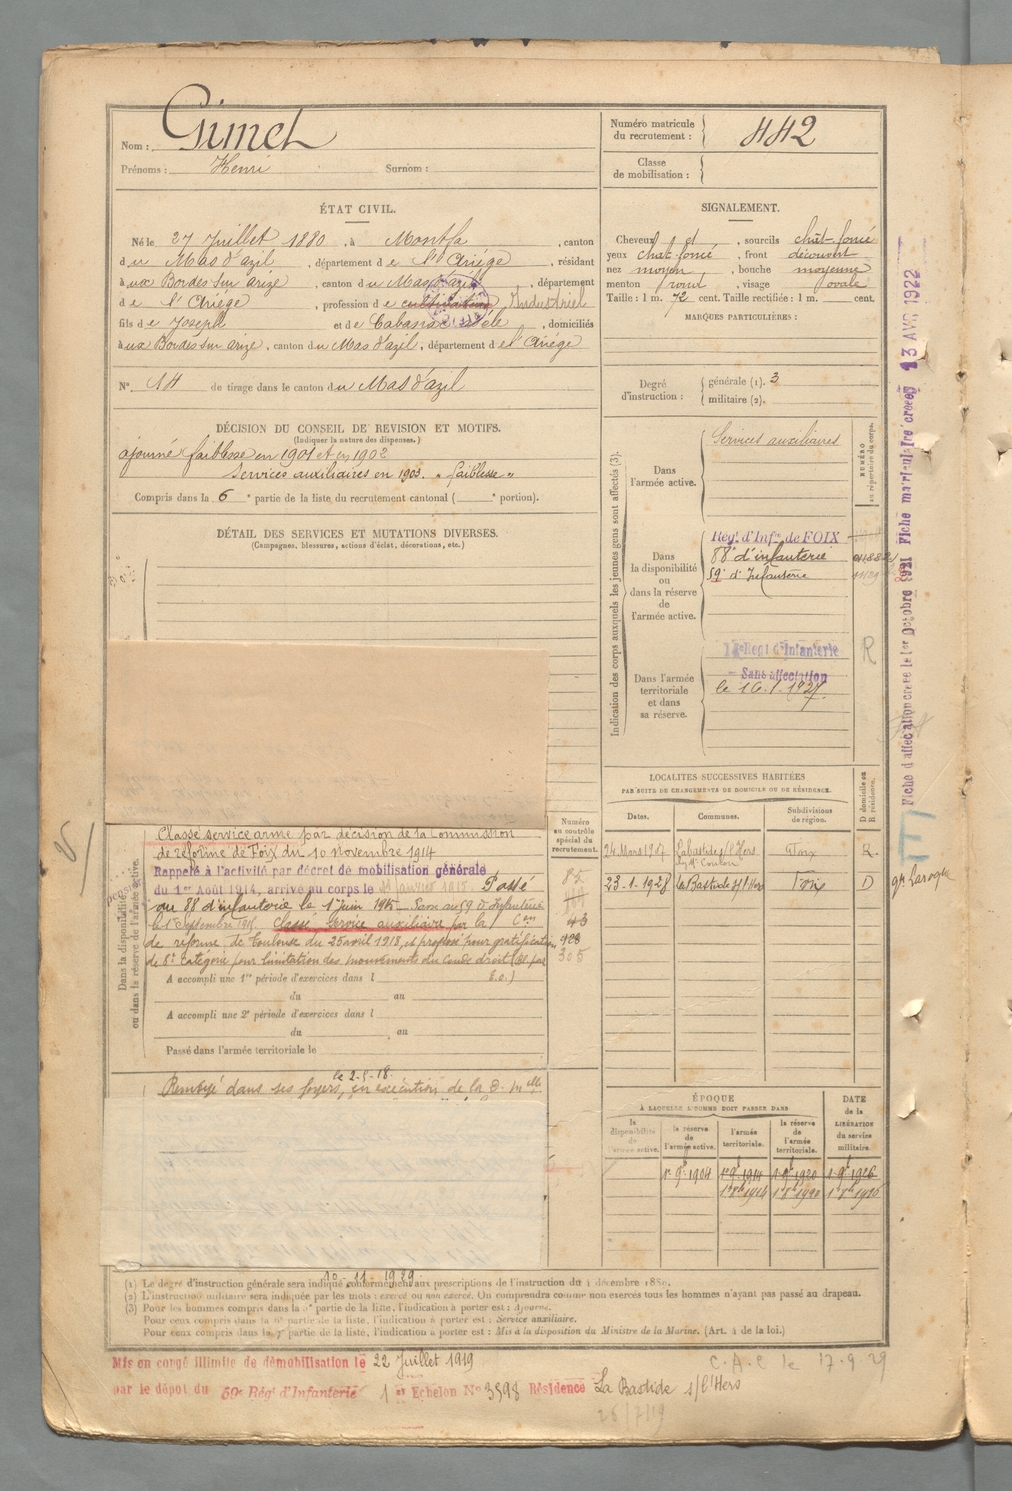 Nom : Gimet
Prénoms : Henri Surnom :
Numéro matricule du recrutement : 442
Classe de mobilisation :
ÉTAT CIVIL.
Né le 27 Juillet 1880, à Montfa, canton
du Mas d'azil, département de l'Ariége, résidant
à ux Bordes sur arize, canton du Mas d'azil, département
de l'Ariège, profession de cultivateur Industriel
fils de Joseph et de Cabanac Adéle, domiciliés
à ux Bordes sur arize, canton du Mas d'azil, département de l'Ariége
N° 14 de tirage dans le canton du Mas d'azil
SIGNALEMENT.
Cheveux et, sourcils chât-foncé
yeux chat-foncé, front découvert
nez moyen, bouche moyenne
menton rond, visage ovale
Taille : 1 m. 72 cent. Taille rectifiée : 1 m. cent.
MARQUES PARTICULIÈRES :
Degré d'instruction : générale (1). 3
militaire (2).
DÉCISION DU CONSEIL DE REVISION ET MOTIFS.
(Indiquer la nature des dispenses.)
ajourné faiblesse en 1901 et en 1902
Services auxiliaires en 1903. " faiblesse "
Compris dans la 6e partie de la liste du recrutement cantonal ( e portion).
DÉTAIL DES SERVICES ET MUTATIONS DIVERSES.
(Campagnes, blessures, actions d'éclat, décorations, etc.)
Indication des corps auxquels les jeunes gens sont affectés (3).
NUMÉRO au répertoire du corps.
Dans l'armée active.
Services auxiliaires
Dans la disponibilité ou dans la réserve de l'armée active.
Régt d'Infie de FOIX
88e d'infanterie
59e d'Infanterie
Dans l'armée territoriale et dans sa réserve.
Régt d'Infanterie
Sans affectation
le 16.1.1927.
R
Fiche d'affectation créée le 1er Octobre 1921 Fiche matriculaire créée 13 AVR 1922
Dans la disponibilité ou dans la réserve de l'armée active.
Classé service armé par décision de la Commission
de réforme de Foix du 10 novembre 1914
Rappelé à l'activité par décret de mobilisation générale
du 1er Août 1914, arrivé au corps le janvier 1915 Passé
au 88 d'infanterie le 1 juin 1915 Passé au 59 d'Infanterie
le 1 Septembre 1915. Classé Service auxiliaire par la Con
de réforme de Toulouse du 25 avril 1918, et proposé pour gratification
de 8e catégorie pour limitation des mouvements du coude droit
A accompli une 1re période d'exercices dans l
du au
A accompli une 2e période d'exercices dans l
du au
Passé dans l'armée territoriale le
le 2.5.18.
Renvoyé dans ses foyers, en exécution de la D. Mlle
Numéro au contrôle spécial du recrutement.
43
305
LOCALITÉS SUCCESSIVES HABITÉES
PAR SUITE DE CHANGEMENTS DE DOMICILE OU DE RÉSIDENCE.
Dates. Communes. Subdivisions de région. D domicile ou R résidence.
24 Mars 1907 Labastide s/ l'Hers Foix R
23-1-1928 La Bastide s/ l'Hers Foix D
ÉPOQUE
À LAQUELLE L'HOMME DOIT PASSER DANS
la disponibilité de l'armée active. la réserve de l'armée active. l'armée territoriale. la réserve de l'armée territoriale. DATE de la LIBÉRATION du service militaire.
1er 9bre 1904 1er 9bre 1914 1er 9bre 1920 1er 9bre 1926
10-11-1929.
(1) Le degré d'instruction générale sera indiqué conformément aux prescriptions de l'instruction du 4 décembre 1889.
(2) L'instruction militaire sera indiquée par les mots : exercé ou non exercé. On comprendra comme non exercés tous les hommes n'ayant pas passé au drapeau.
(3) Pour les hommes compris dans la 5e partie de la liste, l'indication à porter est : Ajourné.
Pour ceux compris dans la 6e partie de la liste, l'indication à porter est : Service auxiliaire.
Pour ceux compris dans la 7e partie de la liste, l'indication à porter est : Mis à la disposition du Ministre de la Marine. (Art. 4 de la loi.)
Mis en congé illimité de démobilisation le 22 Juillet 1919
C.A.C le 17.9.29
par le dépôt du 59e Rég. d'Infanterie 1er Echelon N° 3598 Résidence La Bastide s/l'Hers
25/7/19